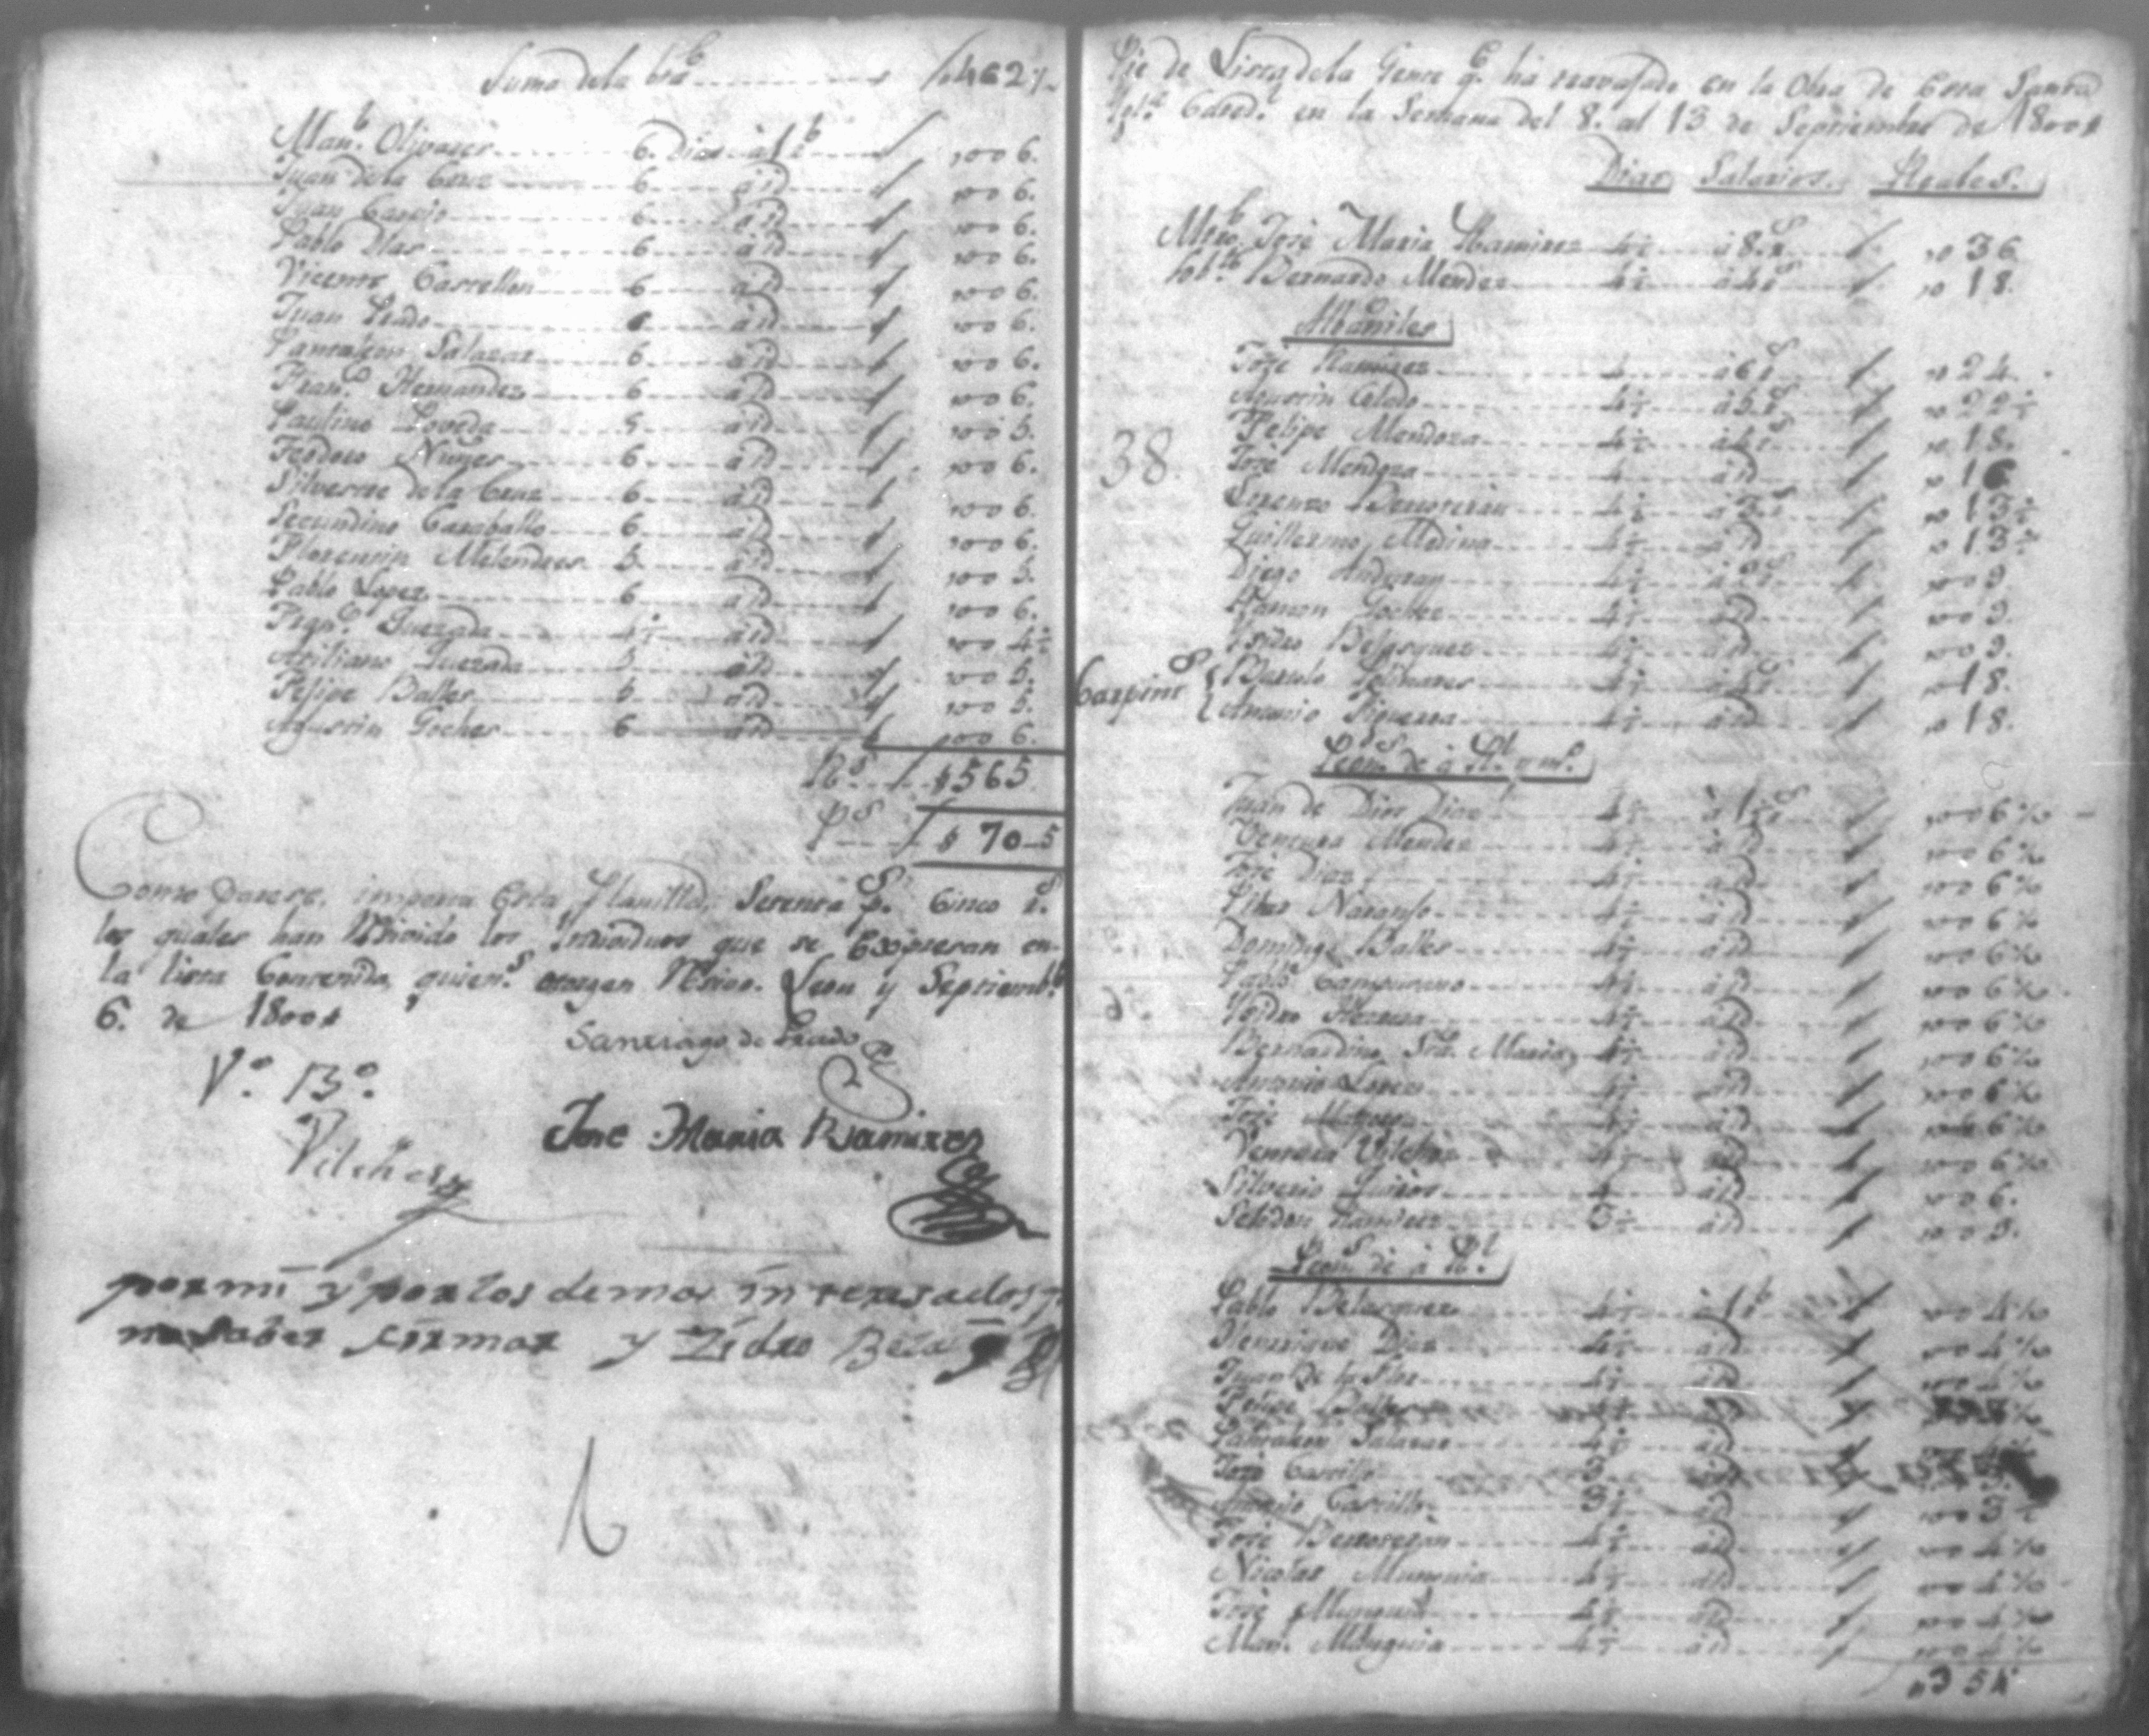 Suma de la bta ... 462½
Man.l Olivares ... 6. Dias à 1 r.l ... 006.
Juan de la Cruz ... 6 ... à id ... 006.
Juan Carpio ... 6 ... à id ... 006.
Pablo Dias ... 6 ... à id ... 006.
Vicente Castellon ... 6 ... à id ... 006.
Juan Prado ... 6 ... à id ... 006.
Pantaleon Salazar ... 6 ... à id ... 006.
Fran.co Hernandez ... 6 ... à id ... 006.
Paulino Poveda ... 5 ... à id ... 005.
Teodoro Nuñes ... 6 ... à id ... 006.
Silvestre de la Cruz ... 6 ... à id ... 006.
Secundino Caraballo ... 6 ... à id ... 006.
Florentin Melendres ... 5 ... à id ... 005.
Pablo Lopez ... 6 ... à id ... 006.
Fran.co Quezada ... 4½ ... à id ... 004½
Quezada ... 5 ... à id ... 005.
Felipe Balles ... 5 ... à id ... 005.
Agustin Goches ... 6 ... à id ... 006.
R.s ... $565
P.s ... $ 70_5
Como parese, importa esta Planilla, Setenta p.s Cinco r.s
los quales han Resivido los Individuos que se Expresan en
la lista Contenida, quien.s otorgan Resivo. Leon y Septiemb.e
6. de 1800,,
Santiago de Prado
V.o B.o
Vilches
Jose Maria Ramires
por mi y por los demas interesados p.r
no saber firmar y Zidro Bela
Pie de Lista de la Gente q.e ha travajado en la Obra de esta Santa
Ygl.a Cated.l en la Semana del 8. al 13 de Septiembre de 1800,,
Dias Salarios. Reales.
Mtro. José Maria Ramirez ... 4½ ... à 8 r.s ... 036
Sob.te Bernardo Mendez ... 4½ ... à 4 r.s ... 018.
Albañiles
José Ramirez ... 4 ... à 6 r.s ... 024.
Agustin ... 4½ ... à 5 r.s ... 022½
38
Felipe Mendoza ... 4½ ... à 4 r.s ... 018.
José Mendoza ... 4 ... à id ... 016
Lorenzo Berroteran ... 4½ ... à 3 r.s ... 013½
Guillermo Medina ... 4½ ... à id ... 013½
Diego Anduray ... 4½ ... à 2 r.s ... 009.
Ramon Goches ... 4½ ... à id ... 009.
Ysidro Belasquez ... 4½ ... à id ... 009.
Carpint.s { Bartolo Colinares ... 4½ ... à 4 r.s ... 018.
Antonio Figueroa ... 4½ ... à id ... 018.
Peon.s de à R.l y m.o
Juan de Dios Dias ... 4½ ... à 1½ r.s ... 006¾
Ventura Mendez ... 4½ ... à id ... 006¾
José Dias ... 4½ ... à id ... 006¾
Pilar Naranjo ... 4½ ... à id ... 006¾
Domingo Balles ... 4½ ... à id ... 006¾
Pablo Campuzano ... 4½ ... à id ... 006¾
Ysidro Herrera ... 4½ ... à id ... 006¾
Bernardino Sta. Maria ... 4½ ... à id ... 006¾
Antonio Lopez ... 4½ ... à id ... 006¾
José ... 4½ ... à id ... 006¾
Ventura Vilches ... 4½ ... à id ... 006¾
Silverio Quiros ... 4 ... à id ... 006.
Seledon Ramirez ... 3½ ... à id ... 005.
Peon.s de à R.l
Pablo Belasquez ... 4½ ... à 1 r.l ... 004½
Henrrique Dias ... 4½ ... à id ... 004½
Juan de la Flor ... 4½ ... à id ... 004½
Felipe Balles ... 4½ ... à id
Pantaleon Salazar ... 4½ ... à id ... 004½
José Castillo ... 3 ... à id
Antonio Castillo ... 3½ ... à id ... 003½
José Berroteran ... 4½ ... à id ... 004½
Nicolas Munguia ... 4½ ... à id ... 004½
José Munguia ... 4½ ... à id ... 004½
Man.l Munguia ... 4½ ... à id ... 004½